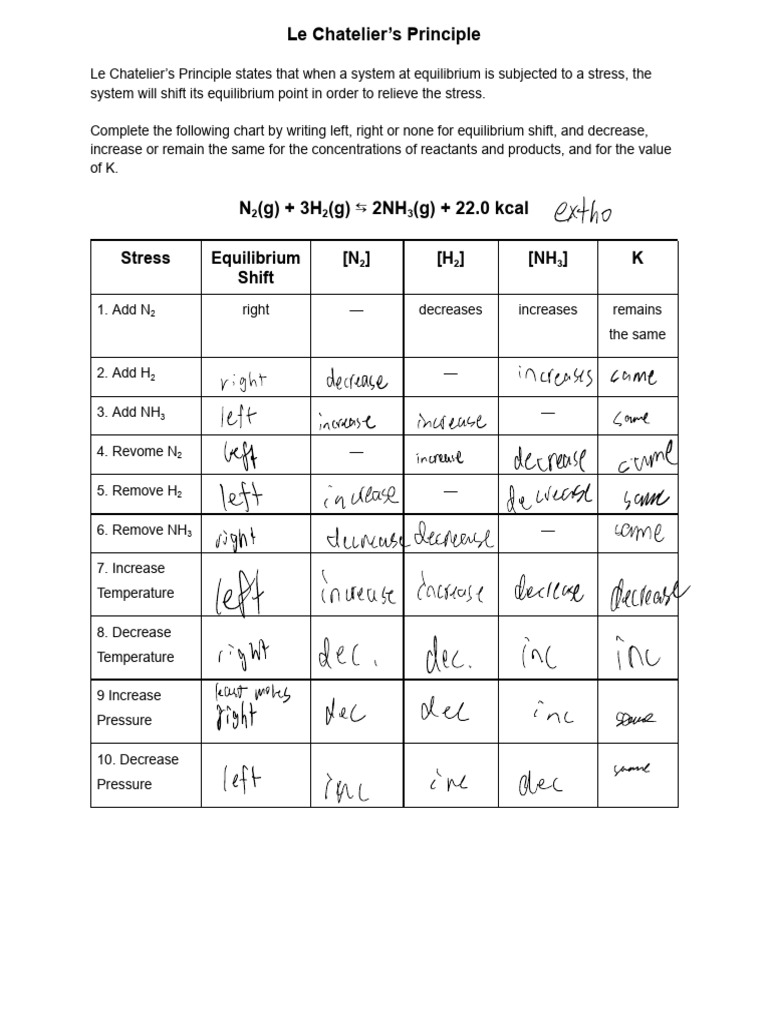 Le Chatelier's Principle
Le Chatelier's Principle states that when a system at equilibrium is subjected to a stress, the
system will shift its equilibrium point in order to relieve the stress.
Complete the following chart by writing left, right or none for equilibrium shift, and decrease,
increase or remain the same for the concentrations of reactants and products, and for the value
of K.
N₂(g) + 3H₂(g) ⇆ 2NH₃(g) + 22.0 kcal extho
Stress Equilibrium Shift [N₂] [H₂] [NH₃] K
1. Add N₂ right — decreases increases remains the same
2. Add H₂ right decrease — increases same
3. Add NH₃ left increase increase — same
4. Revome N₂ left — increase decrease same
5. Remove H₂ left increase — decrease same
6. Remove NH₃ right decrease decrease — same
7. Increase Temperature left increase increase decrease decrease
8. Decrease Temperature right dec. dec. inc inc
9 Increase Pressure least moles right dec dec inc same
10. Decrease Pressure left inc inc dec same